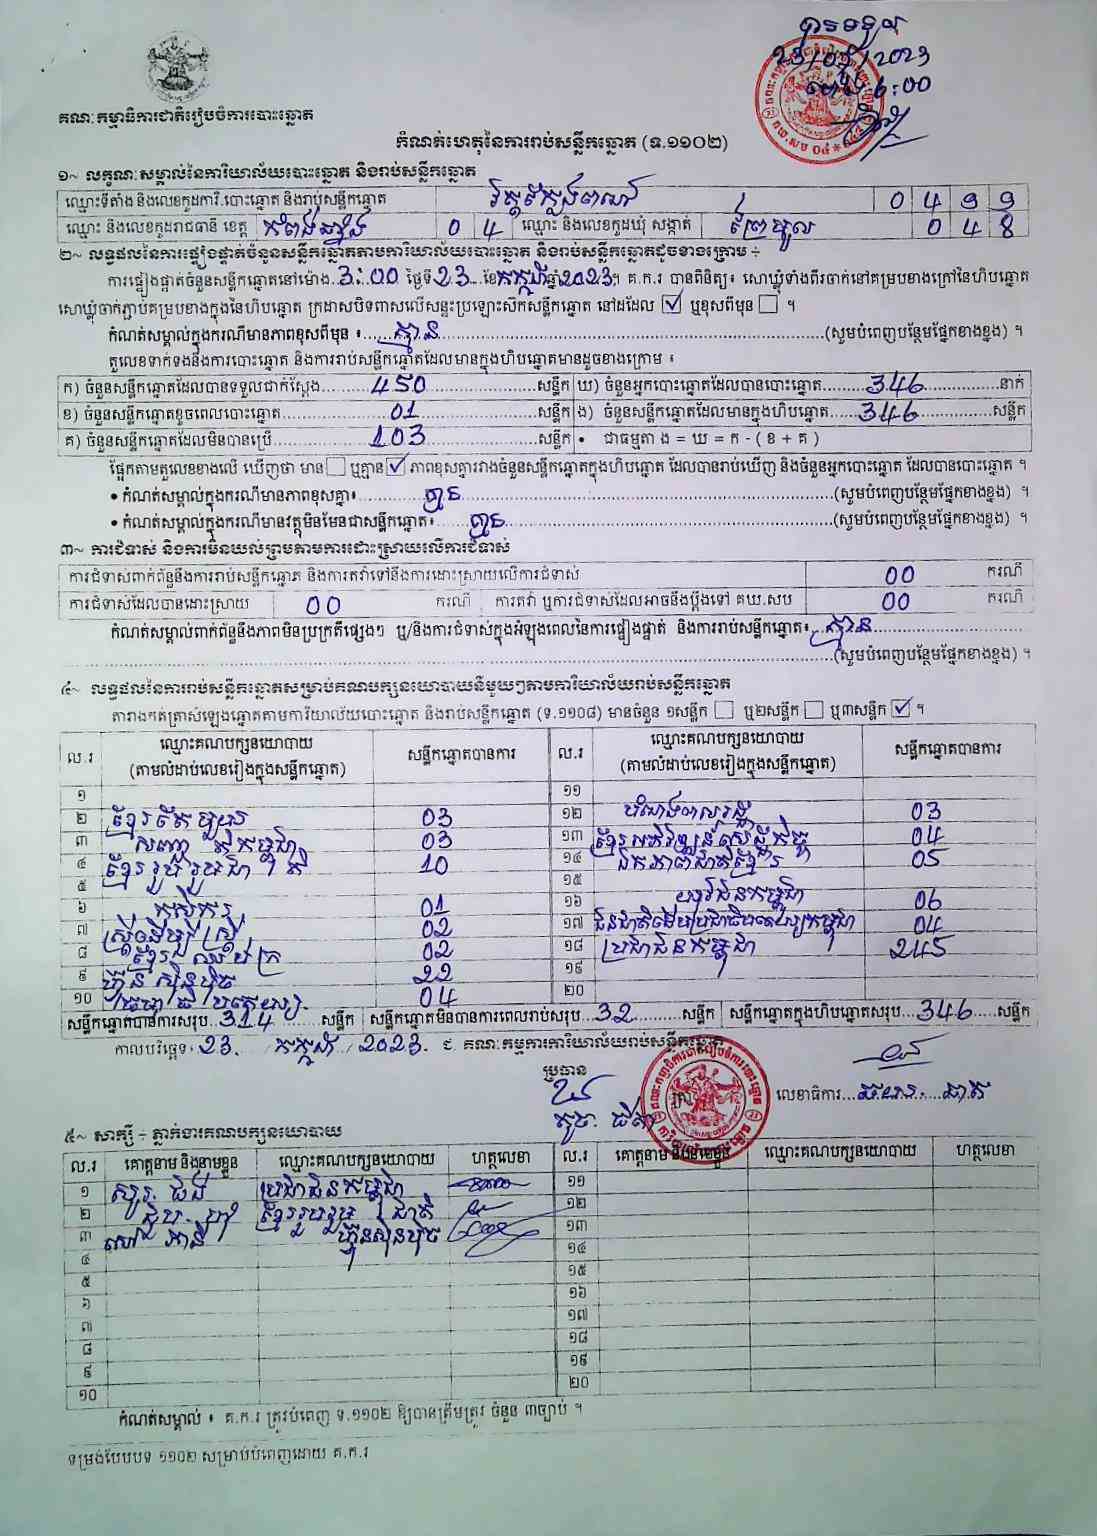 បានទទួល
23/07/2023
ម៉ោង 6:00
គណៈកម្មាធិការជាតិរៀបចំការបោះឆ្នោត
កំណត់ហេតុនៃការរាប់សន្លឹកឆ្នោត (ទ.១១០២)
១~ លក្ខណៈសម្គាល់នៃការិយាល័យបោះឆ្នោត និងរាប់សន្លឹកឆ្នោត
ឈ្មោះទីតាំង និងលេខកូដការិ.បោះឆ្នោត និងរាប់សន្លឹកឆ្នោត 0 4 9 9
ឈ្មោះ និងលេខកូដរាជធានី ខេត្ត កំពង់ឆ្នាំង 0 4 ឈ្មោះ និងលេខកូដឃុំ សង្កាត់ ព្រៃមូល 0 4 8
២~ លទ្ធផលនៃការផ្ទៀងផ្ទាត់ចំនួនសន្លឹកឆ្នោតតាមការិយាល័យបោះឆ្នោត និងរាប់សន្លឹកឆ្នោតដូចខាងក្រោម ÷
ការផ្ទៀងផ្ទាត់ចំនួនសន្លឹកឆ្នោតនៅម៉ោង 3:00 ថ្ងៃទី 23 ខែ កក្កដា ឆ្នាំ 2023 ។ គ.ក.រ បានពិនិត្យ៖ សោឃ្លុំទាំងពីរចាក់នៅគម្របខាងក្រៅនៃហិបឆ្នោត
សោឃ្លុំចាក់ភ្ជាប់គម្របខាងក្នុងនៃហិបឆ្នោត ក្រដាសបិទពាសលើសន្ទះប្រឡោះសិកសន្លឹកឆ្នោត នៅដដែល ☑ ឬខុសពីមុន ☐ ។
កំណត់សម្គាល់ក្នុងករណីមានភាពខុសពីមុន ៖ គ្មាន (សូមបំពេញបន្ថែមផ្នែកខាងខ្នង) ។
តួលេខទាក់ទងនឹងការបោះឆ្នោត និងការរាប់សន្លឹកឆ្នោតដែលមានក្នុងហិបឆ្នោតមានដូចខាងក្រោម ៖
ក) ចំនួនសន្លឹកឆ្នោតដែលបានទទួលជាក់ស្តែង 450 សន្លឹក ឃ) ចំនួនអ្នកបោះឆ្នោតដែលបានបោះឆ្នោត 346 នាក់
ខ) ចំនួនសន្លឹកឆ្នោតខូចពេលបោះឆ្នោត 01 សន្លឹក ង) ចំនួនសន្លឹកឆ្នោតដែលមានក្នុងហិបឆ្នោត 346 សន្លឹក
គ) ចំនួនសន្លឹកឆ្នោតដែលមិនបានប្រើ 103 សន្លឹក • ជាធម្មតា ង = ឃ = ក - ( ខ + គ )
ផ្អែកតាមតួលេខខាងលើ ឃើញថា មាន ☐ ឬគ្មាន ☑ ភាពខុសគ្នារវាងចំនួនសន្លឹកឆ្នោតក្នុងហិបឆ្នោត ដែលបានរាប់ឃើញ និងចំនួនអ្នកបោះឆ្នោត ដែលបានបោះឆ្នោត ។
• កំណត់សម្គាល់ក្នុងករណីមានភាពខុសគ្នា៖ គ្មាន (សូមបំពេញបន្ថែមផ្នែកខាងខ្នង) ។
• កំណត់សម្គាល់ក្នុងករណីមានវត្ថុមិនមែនជាសន្លឹកឆ្នោត៖ គ្មាន (សូមបំពេញបន្ថែមផ្នែកខាងខ្នង) ។
៣~ ការជំទាស់ និងការមិនយល់ព្រមតាមការដោះស្រាយលើការជំទាស់
ការជំទាស់ពាក់ព័ន្ធនឹងការរាប់សន្លឹកឆ្នោត និងការតវ៉ាទៅនឹងការដោះស្រាយលើការជំទាស់ 00 ករណី
ការជំទាស់ដែលបានដោះស្រាយ 00 ករណី ការតវ៉ា ឬការជំទាស់ដែលអាចនឹងប្តឹងទៅ គឃ.សប 00 ករណី
កំណត់សម្គាល់ពាក់ព័ន្ធនឹងភាពមិនប្រក្រតីផ្សេងៗ ឬ/និងការជំទាស់ក្នុងអំឡុងពេលនៃការផ្ទៀងផ្ទាត់ និងការរាប់សន្លឹកឆ្នោត៖ គ្មាន
(សូមបំពេញបន្ថែមផ្នែកខាងខ្នង) ។
៤~ លទ្ធផលនៃការរាប់សន្លឹកឆ្នោតសម្រាប់គណបក្សនយោបាយនីមួយៗតាមការិយាល័យរាប់សន្លឹកឆ្នោត
តារាងកត់ត្រាសំឡេងឆ្នោតតាមការិយាល័យបោះឆ្នោត និងរាប់សន្លឹកឆ្នោត (ទ.១១០៨) មានចំនួន ១សន្លឹក ☐ ឬ២សន្លឹក ☐ ឬ៣សន្លឹក ☑ ។
ល.រ ឈ្មោះគណបក្សនយោបាយ (តាមលំដាប់លេខរៀងក្នុងសន្លឹកឆ្នោត) សន្លឹកឆ្នោតបានការ ល.រ ឈ្មោះគណបក្សនយោបាយ (តាមលំដាប់លេខរៀងក្នុងសន្លឹកឆ្នោត) សន្លឹកឆ្នោតបានការ
១ ១១
២ ខ្មែរតែមួយ 03 ១២ បំណងពលរដ្ឋ 03
៣ 03 ១៣ ខ្មែរអភិវឌ្ឍន៍សេដ្ឋកិច្ច 04
៤ ខ្មែររួបរួមជាតិ 10 ១៤ ឯកភាពជាតិខ្មែរ 05
៥ ១៥
៦ កសិករ 01 ១៦ យុវជនកម្ពុជា 06
៧ ស្ត្រីដើម្បីស្ត្រី 02 ១៧ ជនជាតិដើមប្រជាធិបតេយ្យកម្ពុជា 04
៨ ខ្មែរឈប់ក្រ 02 ១៨ ប្រជាជនកម្ពុជា 245
៩ ហ៊្វុនស៊ិនប៉ិច 22 ១៩
១០ 04 ២០
សន្លឹកឆ្នោតបានការសរុប 314 សន្លឹក សន្លឹកឆ្នោតមិនបានការពេលរាប់សរុប 32 សន្លឹក សន្លឹកឆ្នោតក្នុងហិបឆ្នោតសរុប 346 សន្លឹក
កាលបរិច្ឆេទ៖ 23 កក្កដា 2023 ជ. គណៈកម្មការការិយាល័យរាប់សន្លឹកឆ្នោត
ប្រធាន
លេខាធិការ
៥~ សាក្សី ÷ ភ្នាក់ងារគណបក្សនយោបាយ
ល.រ គោត្តនាម និងនាមខ្លួន ឈ្មោះគណបក្សនយោបាយ ហត្ថលេខា ល.រ គោត្តនាម និងនាមខ្លួន ឈ្មោះគណបក្សនយោបាយ ហត្ថលេខា
១ ប្រជាជនកម្ពុជា ១១
២ ខ្មែររួបរួមជាតិ ១២
៣ ហ៊្វុនស៊ិនប៉ិច ១៣
៤ ១៤
៥ ១៥
៦ ១៦
៧ ១៧
៨ ១៨
៩ ១៩
១០ ២០
កំណត់សម្គាល់ ៖ គ.ក.រ ត្រូវបំពេញ ទ.១១០២ ឱ្យបានត្រឹមត្រូវ ចំនួន ៣ច្បាប់ ។
ទម្រង់បែបបទ ១១០២ សម្រាប់បំពេញដោយ គ.ក.រ